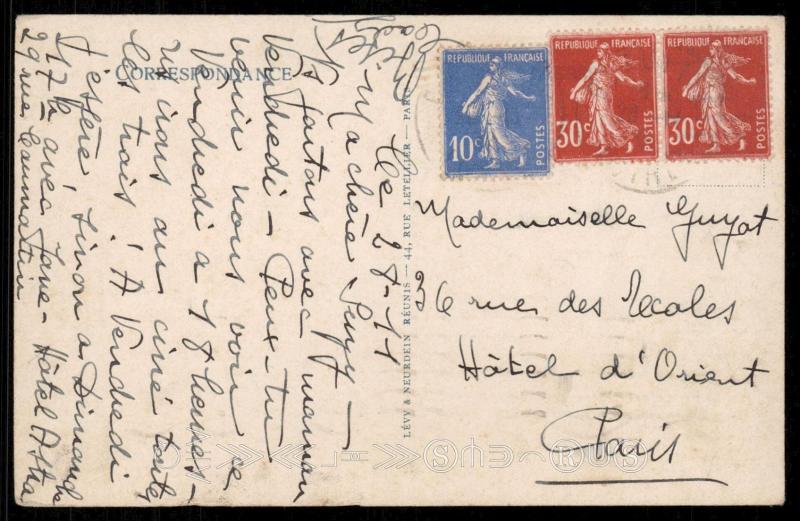 CORRESPONDANCE
LÉVY & NEURDEIN RÉUNIS — 44, RUE LETELLIER — PARIS
REPUBLIQUE FRANÇAISE
10c POSTES
REPUBLIQUE FRANÇAISE
30c POSTES
REPUBLIQUE FRANÇAISE
30c POSTES
Mademoiselle Guyot
36 rue des Ecoles
Hôtel d'Orient
Paris
Le 28-11
Ma chère Suzy —
Ns partons avec maman
Vendredi — Peux-tu
venir nous voir ce
Vendredi à 18 heures —
irons au ciné toutes
les trois! A Vendredi
J'espère, sinon à Dimanche
17h avec Jane — Hôtel Astra
29 rue Caumartin